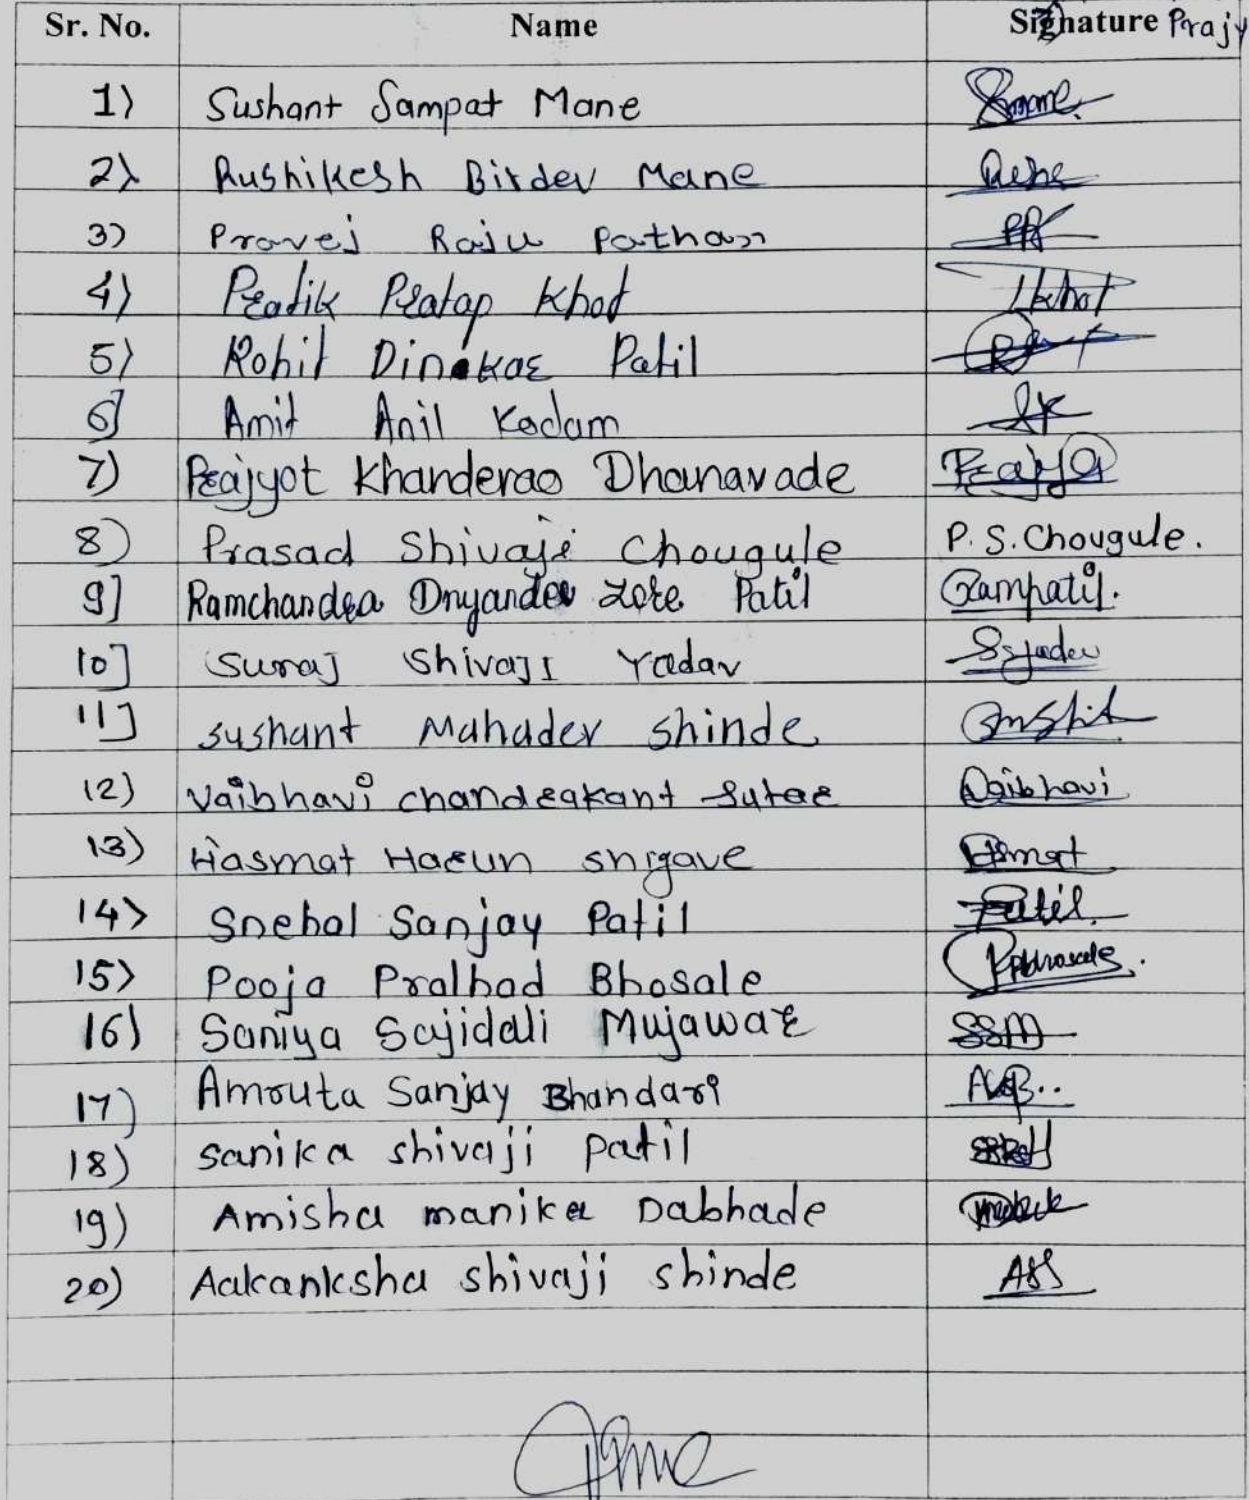 Sr. No. Name Signature Prajy
1) Sushant Sampat Mane
2) Rushikesh Birdev Mane
3) Pravej Raju Pathan
4) Pratik Pratap Khot Khot
5) Rohit Dinakar Patil
6] Amit Anil Kadam
7) Prajyot Khanderao Dhanavade Prajyot
8) Prasad Shivaji Chougule P. S. Chougule.
9] Ramchandra Dnyandev Zore Patil Rampatil.
10] Suraj Shivaji Yadav SSyadav
11] Sushant Mahadev Shinde
12) Vaibhavi chandrakant Sutar Vaibhavi
13) Hasmat Harun shigave
14) Snehal Sanjay Patil Patil.
15) Pooja Pralhad Bhosale PPBhosale.
16) Saniya Sajidali Mujawar SSM
17) Amruta Sanjay Bhandari ASB..
18) Sanika shivaji patil
19) Amisha manika Dabhade
20) Aakanksha shivaji shinde ASS